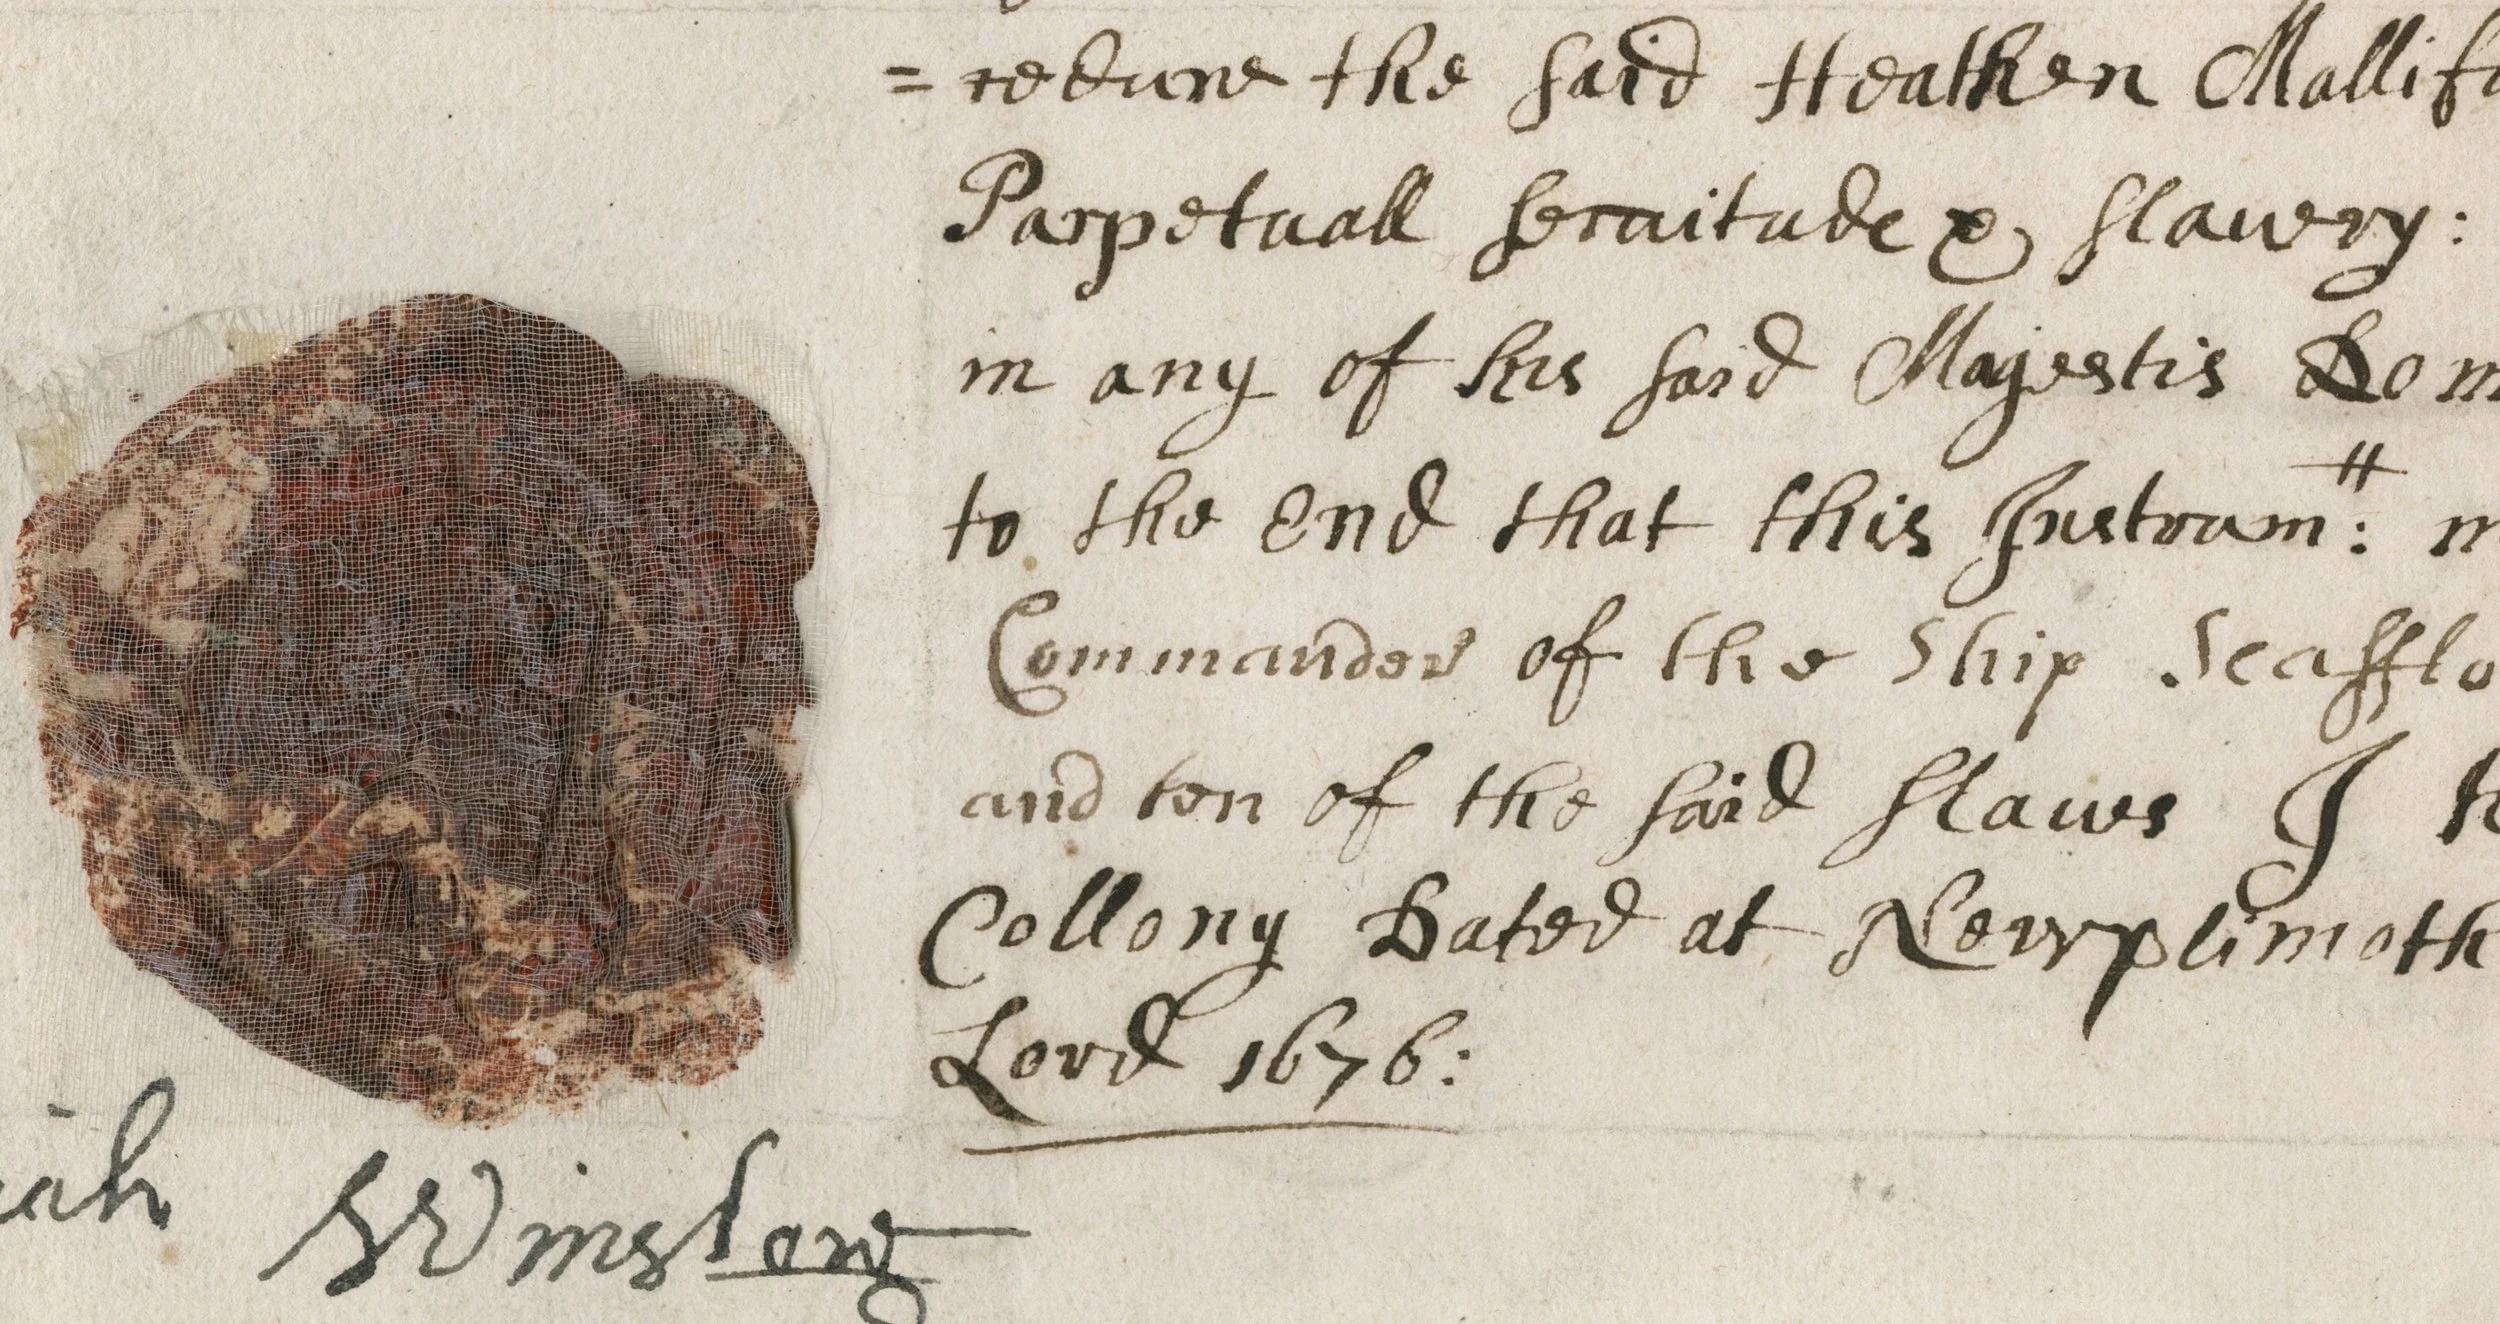 = reduce the said Heathen Mallifa
Parpetuall seruitude & slauery:
in any of his said Majestis Dom
to the End that this Instrum:tt m
Commander of the Ship Seafflo
and ten of the said slaues I
Collony Dated at Newplimoth
Lord 1676:
iah Winslow